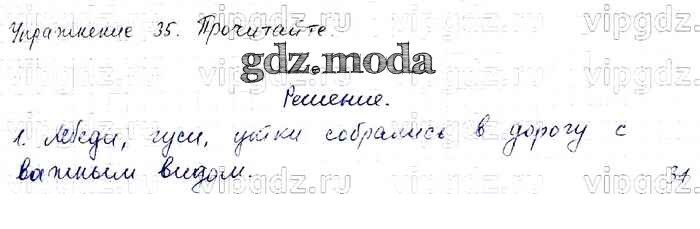 Упражнение 35. Прочитайте.
gdz.moda
Решение.
1. Лебеди, гуси, утки собрались в дорогу с
важным видом.
31
vipgadz.ru